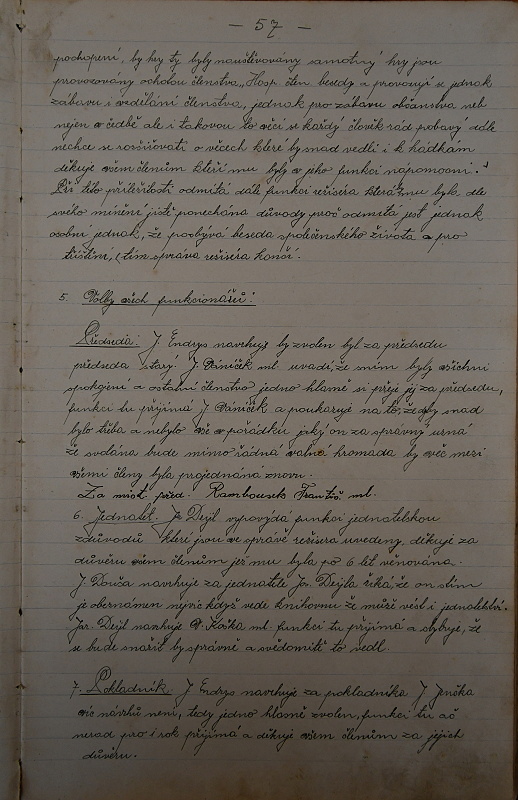 — 57 —
pochopení, by hry ty byly navštěvovány samotný hry jsou
provozovány ochotou členstva, Hosp. čten. besedy a provozují se jednak
zábavu i vzdělání členstva, jednak pro zábavu občanstva neb
nejen v četbě ale i takovou to věcí se každý člověk rád pobaví dále
nechce se rozšiřovati o věcech které by snad vedli i k hádkám
děkuje všem členům kteří mu byly v jeho funkci nápomocni.
Při této příležitosti odmítá dále funkci režiséra která mu byla dle
svého mínění jistě ponechána důvody proč odmítá jest jednak
osobní jednak, že pozbývá beseda společenského života a pro
tříštění, tím zpráva režiséra končí.
5. Volby všech funkcionářů:
Předseda: J. Endrys navrhuje by zvolen byl za předsedu
předseda starý. J. Vaníček ml. uvádí, že s ním byly všichni
spokojeni a ostatní členstvo jedno hlasně si přeje jej za předsedu,
funkci tu přijímá J. Vaníček a poukazuje na to, že aby snad
bylo třeba a nebylo vše v pořádku jaký on za správný uzná
že svolána bude mimořádná valná hromada by věc mezi
všemi členy byla projednána znovu.
Za míst. před. Rambousek Františ. ml.
6. Jednatel. Jos. Dejl vypovýdá funkci jednatelskou
z důvodů které jsou ve zprávě režiséra uvedeny, děkuje za
důvěru všem členům jež mu byla po 6 let věnována.
J. Douša navrhuje za jednatele Jos. Dejla říká, že on s tím
je obeznámen nejvíc když vede knihovnu že může vést i jednatelství.
Jos. Dejl navrhuje V. Koška ml. funkci tu přijímá a slibuje, že
se bude snažit by správně a svědomitě to vedl.
7. Pokladník. J. Endrys navrhuje za pokladníka J. Jenčka
víc návrhů není, tedy jedno hlasně zvolen, funkci tu ač
nerad pro i rok přijímá a děkuje všem členům za jejich
důvěru.